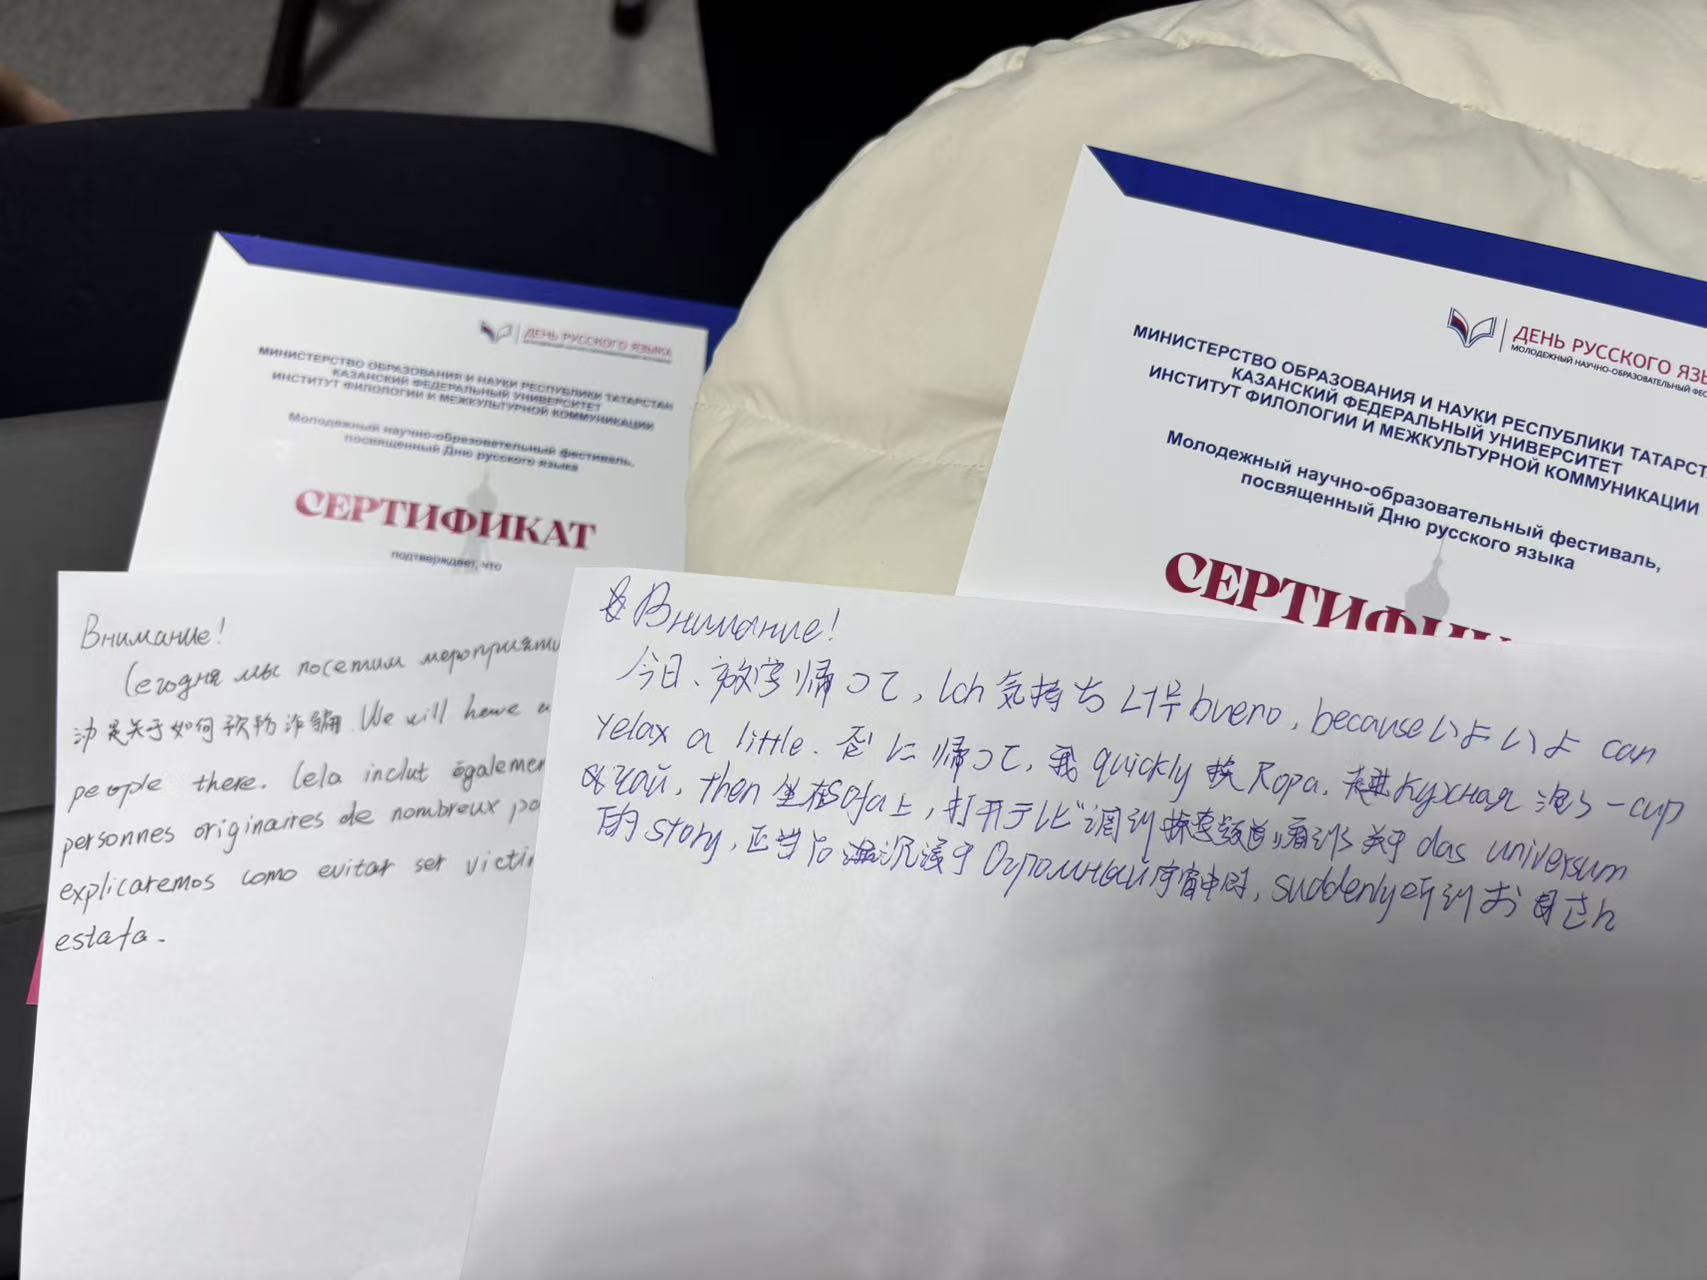 ДЕНЬ РУССКОГО ЯЗЫКА
МИНИСТЕРСТВО ОБРАЗОВАНИЯ И НАУКИ РЕСПУБЛИКИ ТАТАРСТАН
КАЗАНСКИЙ ФЕДЕРАЛЬНЫЙ УНИВЕРСИТЕТ
ИНСТИТУТ ФИЛОЛОГИИ И МЕЖКУЛЬТУРНОЙ КОММУНИКАЦИИ
Молодежный научно-образовательный фестиваль,
посвященный Дню русского языка
СЕРТИФИКАТ
подтверждает, что
ДЕНЬ РУССКОГО ЯЗЫ
МОЛОДЕЖНЫЙ НАУЧНО-ОБРАЗОВАТЕЛЬНЫЙ ФЕС
МИНИСТЕРСТВО ОБРАЗОВАНИЯ И НАУКИ РЕСПУБЛИКИ ТАТАРСТ
КАЗАНСКИЙ ФЕДЕРАЛЬНЫЙ УНИВЕРСИТЕТ
ИНСТИТУТ ФИЛОЛОГИИ И МЕЖКУЛЬТУРНОЙ КОММУНИКАЦИИ
Молодежный научно-образовательный фестиваль,
посвященный Дню русского языка
СЕРТИФИК
Внимание!
Сегодня мы посетим мероприяти
是关于如何 诈骗. We will have a
people there. Cela inclut égalemen
personnes originaires de nombreux pa
explicaremos como evitar ser victi
estafa.
Внимание!
今日、放学帰って, Ich 気持ち bueno, because いよいよ can
relax a little. 家に帰って, 我 quickly 换 Ropa, Кухная 泡了一cup
чай, then 坐在Sofa上, 打开テレビ"调到探索频道,看到了关于 das universum
的 story, 正当 沉浸于 Огромный宇宙中时, suddenly听到 お母さん